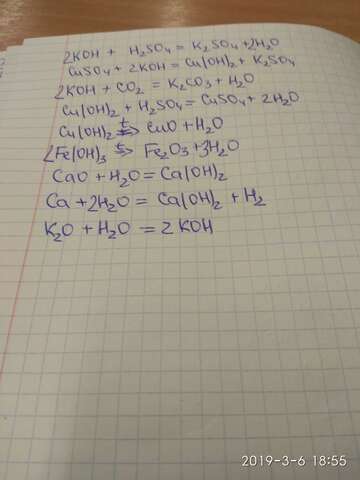 2KOH + H₂SO₄ = K₂SO₄ + 2H₂O
CuSO₄ + 2KOH = Cu(OH)₂ + K₂SO₄
2KOH + CO₂ = K₂CO₃ + H₂O
Cu(OH)₂ + H₂SO₄ = CuSO₄ + 2H₂O
Cu(OH)₂ t→ CuO + H₂O
2Fe(OH)₃ t→ Fe₂O₃ + 3H₂O
CaO + H₂O = Ca(OH)₂
Ca + 2H₂O = Ca(OH)₂ + H₂
K₂O + H₂O = 2KOH
2019-3-6 18:55